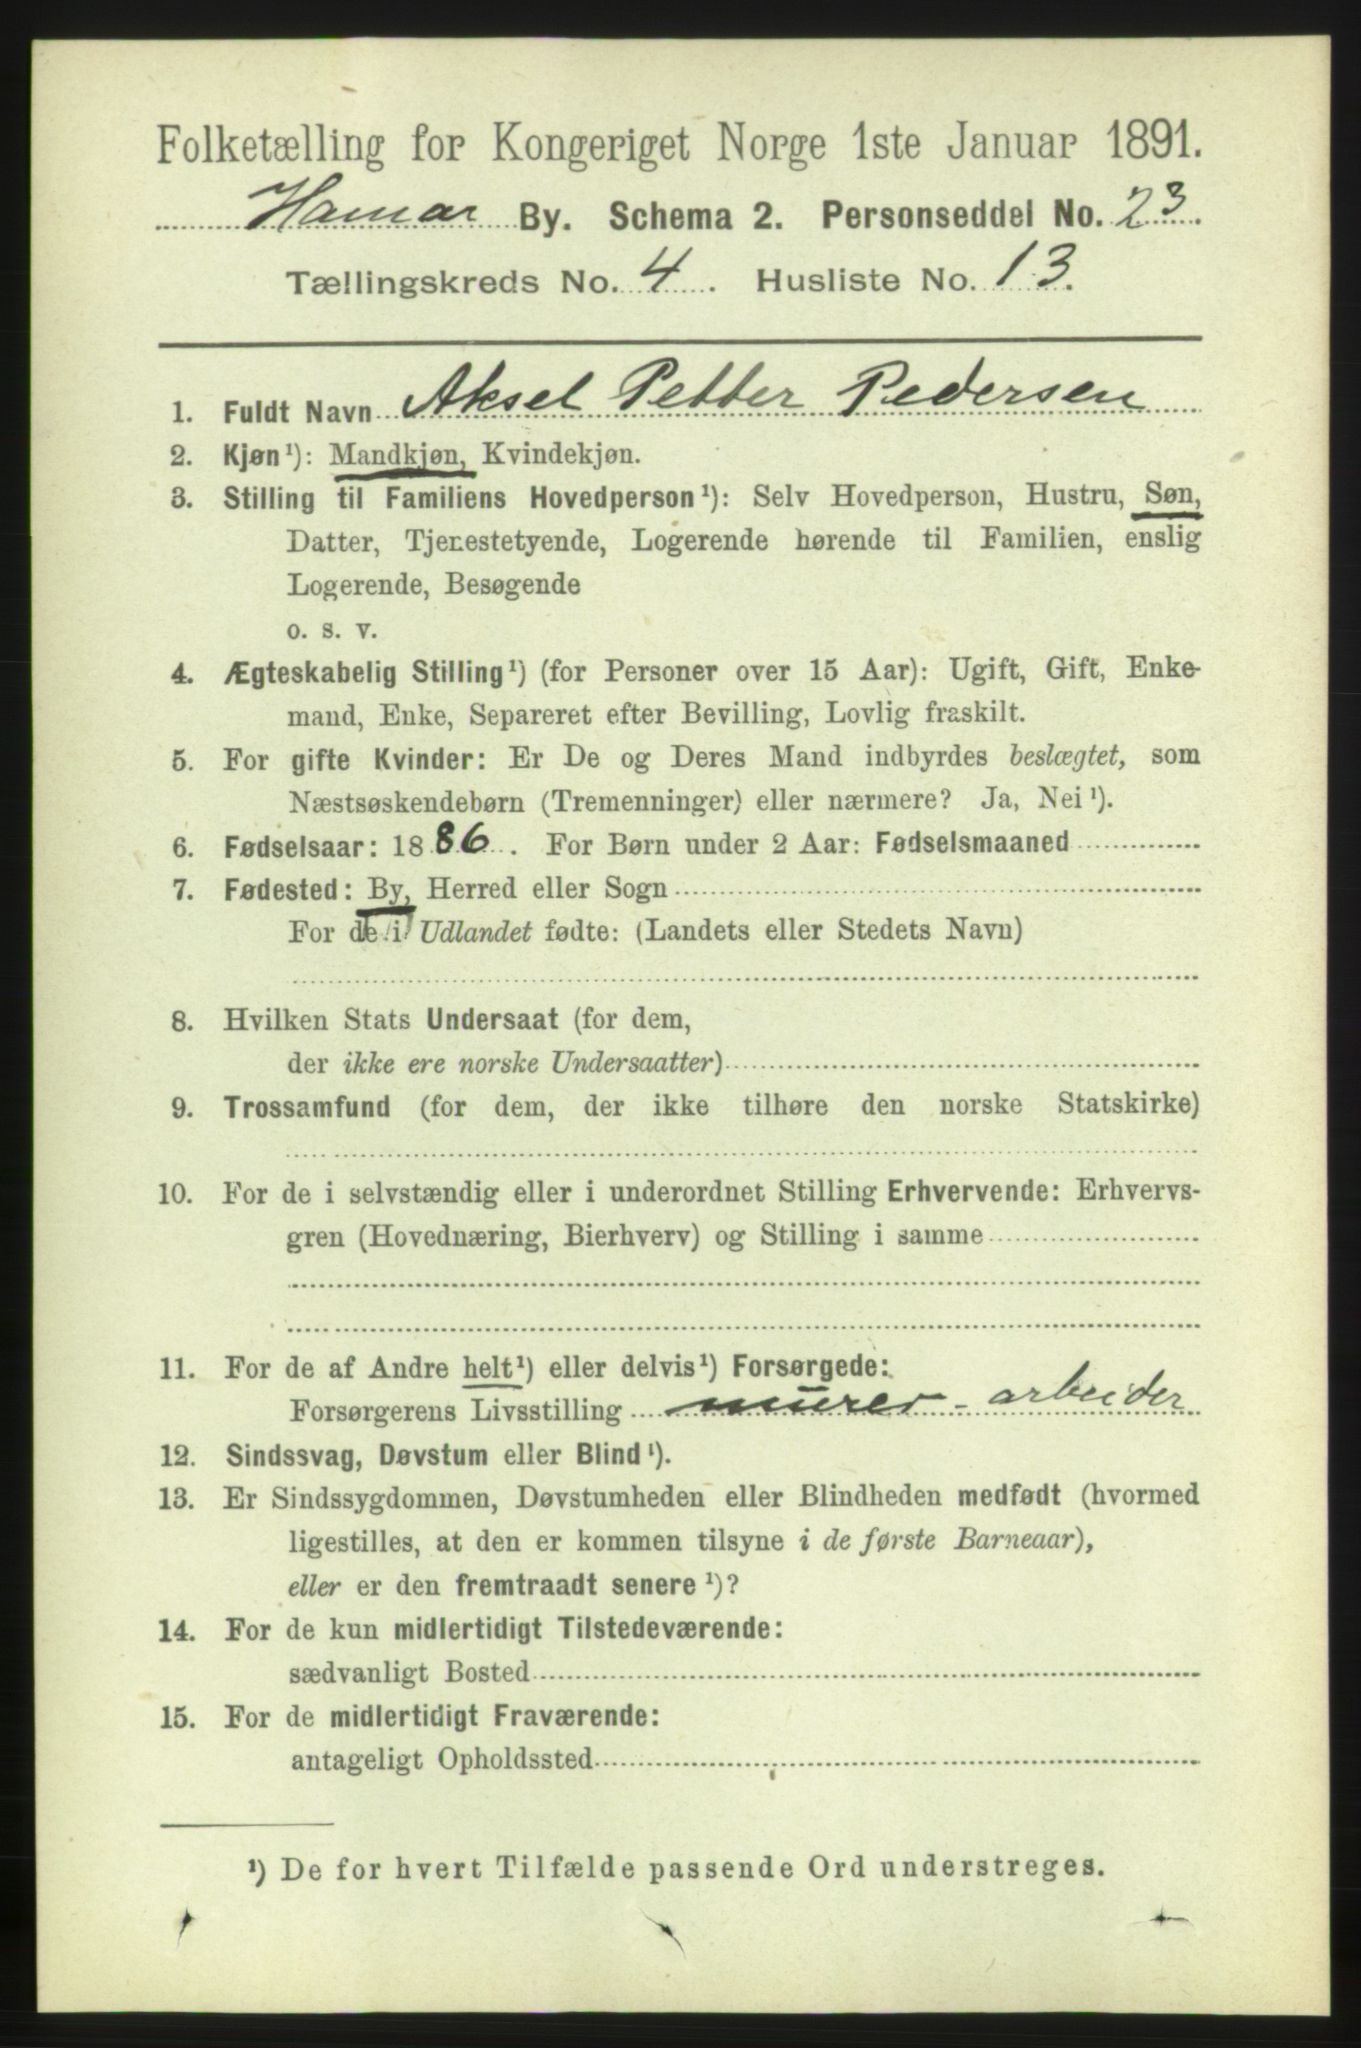 Folketælling for Kongeriget Norge 1ste Januar 1891.
Hamar By. Schema 2. Personseddel No. 23.
Tællingskreds No. 4. Husliste No. 13.
1. Fuldt Navn Aksel Petter Pedersen
2. Kjøn¹): Mandkjøn, Kvindekjøn.
3. Stilling til Familiens Hovedperson¹): Selv Hovedperson, Hustru, Søn,
Datter, Tjenestetyende, Logerende hørende til Familien, enslig
Logerende, Besøgende
o. s. v.
4. Ægteskabelig Stilling¹) (for Personer over 15 Aar): Ugift, Gift, Enke-
mand, Enke, Separeret efter Bevilling, Lovlig fraskilt.
5. For gifte Kvinder: Er De og Deres Mand indbyrdes beslægtet, som
Næstsøskendebørn (Tremenninger) eller nærmere? Ja, Nei¹).
6. Fødselsaar: 1886. For Børn under 2 Aar: Fødselsmaaned
7. Fødested: By, Herred eller Sogn
For de i Udlandet fødte: (Landets eller Stedets Navn)
8. Hvilken Stats Undersaat (for dem,
der ikke ere norske Undersaatter)
9. Trossamfund (for dem, der ikke tilhøre den norske Statskirke)
10. For de i selvstændig eller i underordnet Stilling Erhvervende: Erhvervs-
gren (Hovednæring, Bierhverv) og Stilling i samme
11. For de af Andre helt¹) eller delvis¹) Forsørgede:
Forsørgerens Livsstilling murer-arbeider
12. Sindssvag, Døvstum eller Blind¹).
13. Er Sindssygdommen, Døvstumheden eller Blindheden medfødt (hvormed
ligestilles, at den er kommen tilsyne i de første Barneaar),
eller er den fremtraadt senere¹)?
14. For de kun midlertidigt Tilstedeværende:
sædvanligt Bosted
15. For de midlertidigt Fraværende:
antageligt Opholdssted
¹) De for hvert Tilfælde passende Ord understreges.